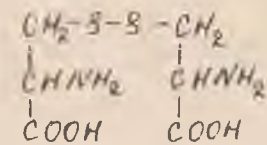 CH₂-S-S-CH₂
CHNH₂ CHNH₂
COOH COOH